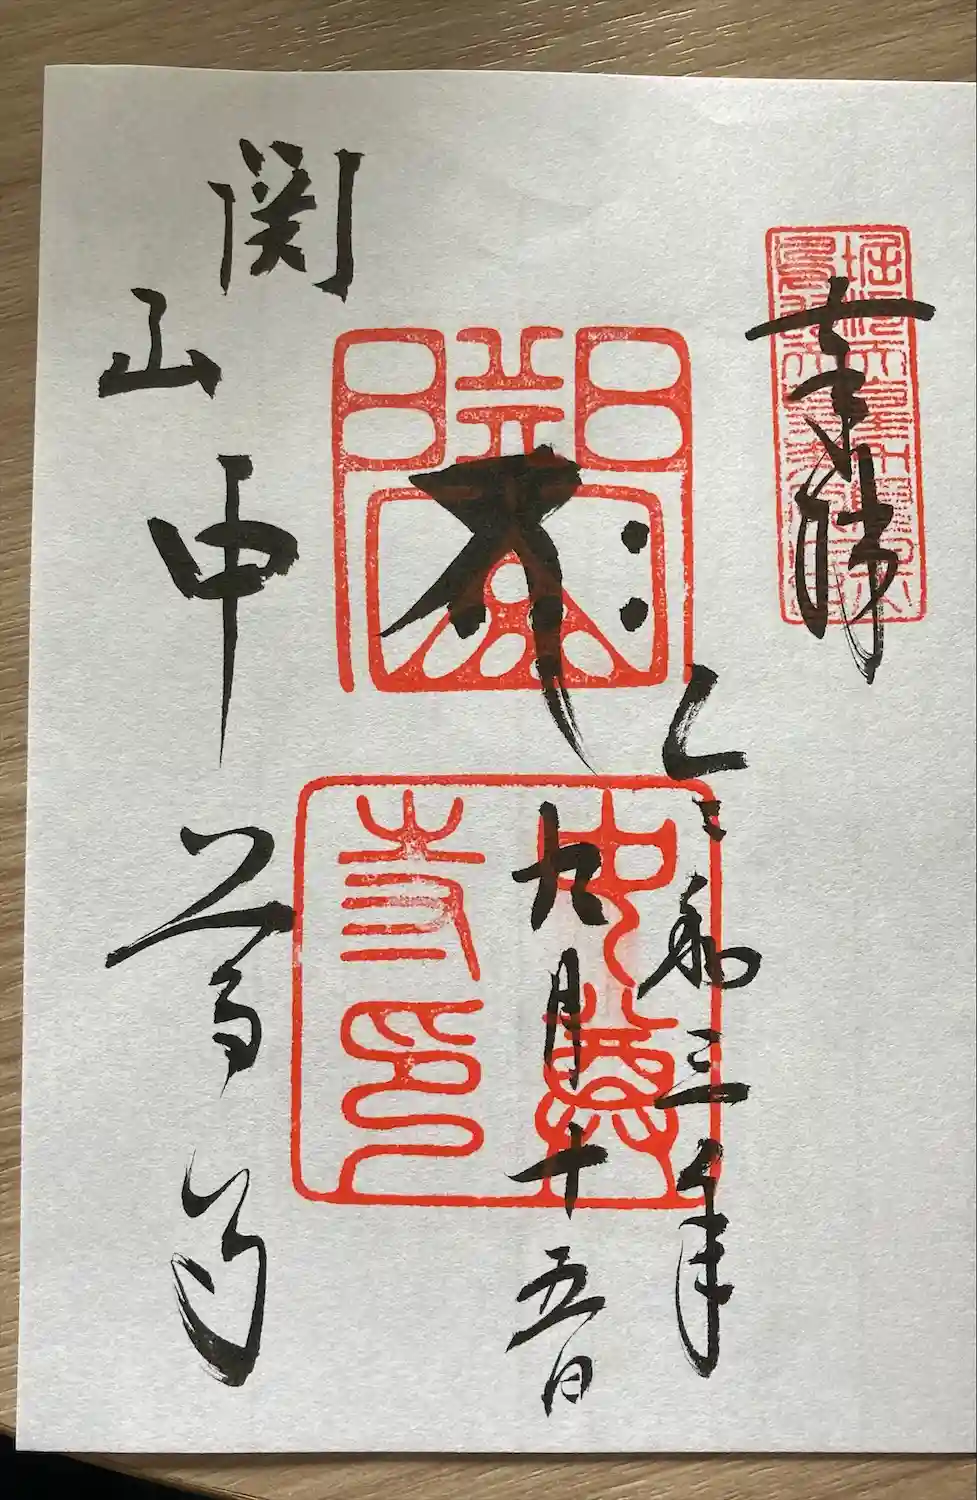 奉拝
令和三年
九月十五日
中尊
寺印
関山中尊寺